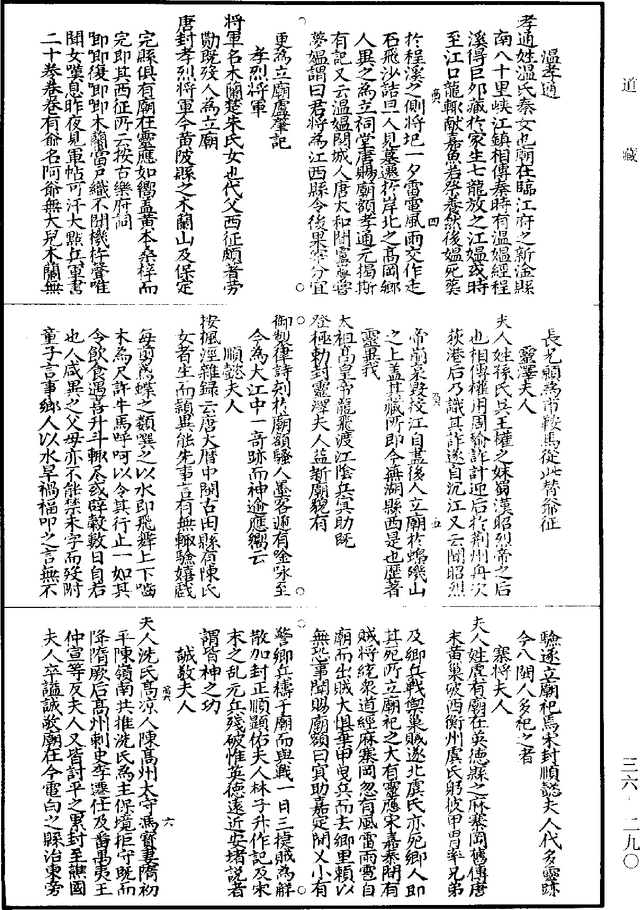 道藏
溫孝通
孝通姓溫氏秦女也廟在臨江府之新淦縣
南八十里峽江鎮相傳秦時有溫媼經程
溪得巨卵藏於家生七龍放之江媼或時
至江口龍輒獻嘉魚若荅養然後媼死葬
於程溪之側將圯一夕雷電風雨交作走
石飛沙詰旦人見墓遷於岸北之高岡鄉
人異之為立祠堂唐賜廟額孝通元揭斯
有記又云溫媼閩城人唐太和間盧肇嘗
夢媼謂曰君將為江西縣令後果宰分宜
更為立廟盧肇記
孝烈將軍
將軍名木蘭楚朱氏女也代父西征頗著勞
勩既歿人為立廟
唐封孝烈將軍今黃陂縣之木蘭山及保定
完縣俱有廟在靈應如嚮蓋黃本桑梓而
完即其西征所云按古樂府詞
唧唧復唧唧木蘭當戶織不聞機杼聲唯
聞女嘆息昨夜見軍帖可汗大點兵軍書
二十卷卷卷有爺名阿爺無大兒木蘭無
長兄願為市鞍馬從此替爺征
靈澤夫人
夫人姓孫氏吳王權之妹蜀漢昭烈帝之后
也相傳權用周瑜詐計迎后於荆州舟次
荻港后乃識其詐遂自沉江又云聞昭烈
帝崩哀毀投江自盡後人立廟於蟂磯山
之上蓋其藏所即今蕪湖縣西是也歷著
靈異我
太祖高皇帝龍飛渡江陰兵冥助既
登極勅封靈澤夫人益新廟貌有
御製律詩刻於廟額騷人墨客遞有唫咏至
今為大江中一奇跡而神逾應嚮云
順懿夫人
按楓涇雜錄云唐大曆中閩古田縣有陳氏
女者生而穎異能先事言有無輒驗嬉戲
每剪為蝶之類噀之以水即飛舞上下嚙
木為尺許牛馬呼呵以令其行止一如其
令飲食遇喜升斗輒盡或辟穀數日自若
也人咸異之父母亦不能禁未字而歿附
童子言事鄉人以水旱禍福叩之言無不
驗遂立廟祀焉宋封順懿夫人代多靈跡
今八閩人多祀之者
寨將夫人
夫人姓虞有廟在英德縣之麻寨岡舊傳唐
末黃巢破西衡州虞氏躬披甲冑率兄弟
及鄉兵戰禦巢賊遂北虞氏亦死鄉人即
其死所立廟祀之大有靈應宋嘉泰間有
賊將統衆道經麻寨岡忽有風雷雨雹自
廟而出賊大懼棄甲曳兵而去鄉里賴以
無恐事聞賜廟額曰冥助嘉定間又小有
警鄉兵禱于廟而與戰一日三捷賊為解
散加封正順顯佑夫人林子升作記及宋
末之亂元兵殘破惟英德遠近安堵說者
謂皆神之功
誠敬夫人
夫人洗氏高凉人陳高州太守馮寶妻隋初
平陳嶺南共推洗氏為主保境拒守既而
降隋厥后高州剌史李遷仕及番禺夷王
仲宣等反夫人又皆討平之累封至譙國
夫人卒謚誠敬廟在今電白之縣治東旁
三六–二九〇